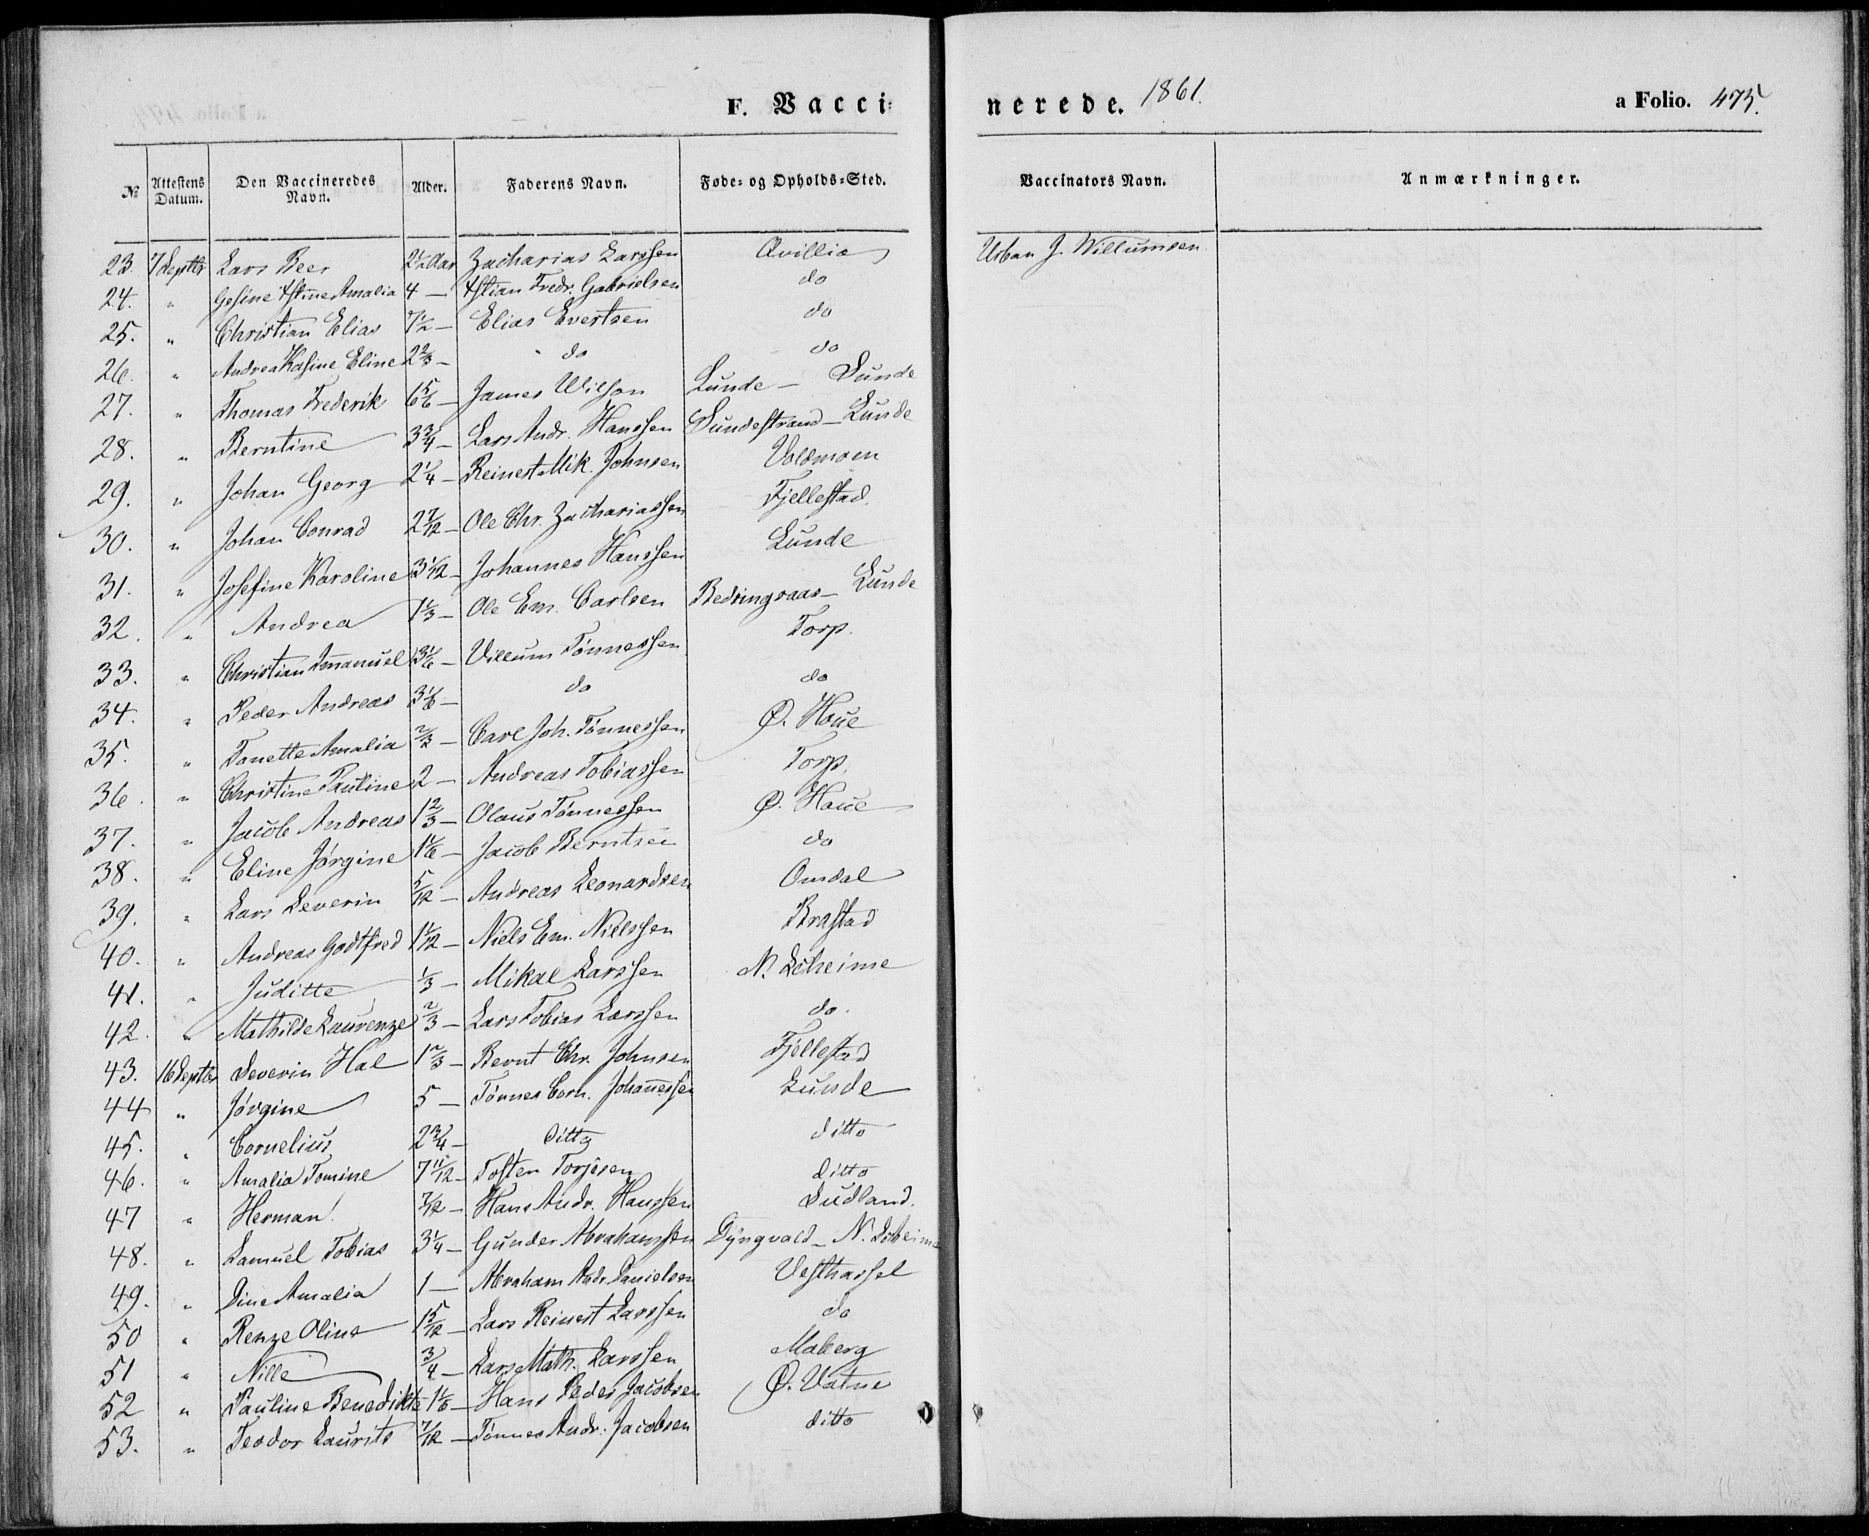 F. Vacci=
nerede. 1861.
a Folio. 475.
№ Attestens Datum. Den Vaccineredes Navn. Alder. Faderens Navn. Føde= og Opholds=Sted. Vaccinators Navn. Anmærkninger.
23. 7 Septbr Lars Beer 2½ Aar Zacharias Larssen Qvillie Urban J. Willumsen
24. " Gesine Amalia 4 — Fredr. Gabrielsen do
25. " Christian Elias 7½ — Elias Evertsen do
26. " Andrea Eline 2⅔ — do do
27. " Thomas Frederik 6⅚ — James Wilson Lunde — Sunde
28. " Berntine 3¾ — Lars Andr. Hanssen Sundestrand — Lunde
29. " Johan Georg 2¼ — Reinert Mik. Johnsen Voldmoen
30. " Johan Conrad 2 7/12 — Ole Chr. Zachariassen Fjellestad.
31. " Josefine Karoline 3 1/12 — Johannes Hanssen Lunde
32. " Andrea 1⅓ — Ole Em. Carlsen — Lunde
33. " Christian Emanuel 3⅙ — Villum Tønnessen Torp.
34. " Peder Andreas 3⅙ — do do
35. " Tonette Amalia ⅔ — Carl Joh. Tønnessen Ø. Haue
36. " Christine Pauline 2 — Andreas Tobiassen Torp.
37. " Jacob Andreas 1⅔ — Olaus Tønnessen Ø. Haue
38. " Eline Jørgine 1⅙ — Jacob Berntsen do
39. " Lars Severin 5/12 — Andreas Leonardsen Omdal
40. " Andreas Godtfred 1 1/12 — Niels Em. Nielssen Brastad
41. " Juditte ⅓ — Mikal Larssen N. Scheime
42. " Mathilde Laurenze ⅔ — Lars Tobias Larssen do.
43. 16 Septbr Severin Hal 1⅔ — Bernt Chr. Johnsen Fjellestad
44 " Jørgine 5 — Tønnes Corn. Johanessen Lunde
45. " Cornelius 2¾ — ditto ditto
46. " Amalia Tomine 7 11/12 — Tosten Torjesen ditto
47 " Herman 7/12 — Hans Andr. Hanssen Sudland.
48. " Samuel Tobias 3¼ — Gunder Abrahamssen Dyngvold — N. Scheime
49. " Sine Amalia 1 — Abraham Andr. Danielsen Vesthassel
50 " Renze Oline 1 5/12 — Lars Reinert Larssen do
51 " Nille ¾ — Lars Math. Larssen Maberg
52 " Pauline Benedikte 1⅙ — Hans Peder Jacobsen Ø. Vatne
53. " Teodor Laurits 7/12 — Tønnes Andr. Jacobsen ditto